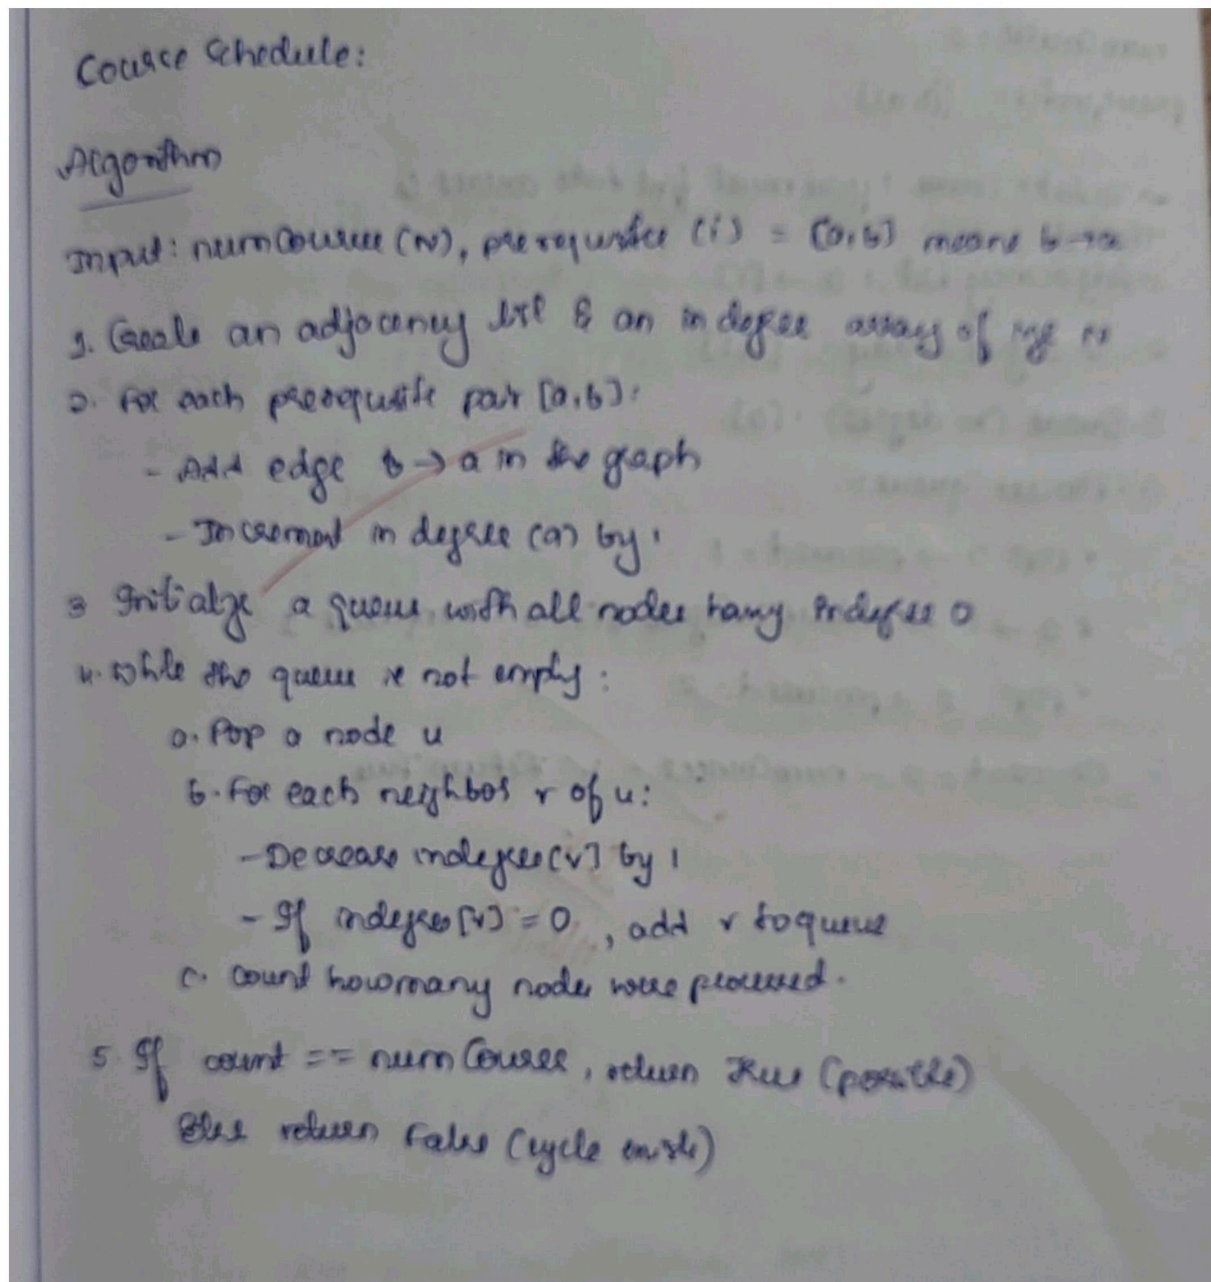 Course Schedule:
Algorithm
Input: numCourse (N), prerequisite (i) = [a,b] means b→a
1. Create an adjacency list & an indegree array of size N
2. For each prerequisite pair [a,b]:
- Add edge b → a in the graph
- Increment in degree (a) by 1
3 Initialize a queue with all nodes having indegree 0
4. While the queue is not empty:
a. Pop a node u
b. For each neighbor v of u:
- Decrease indegree[v] by 1
- If indegree[v] = 0, add v to queue
c. Count how many nodes were processed.
5. If count == numCourses, return True (possible)
Else return False (cycle exists)